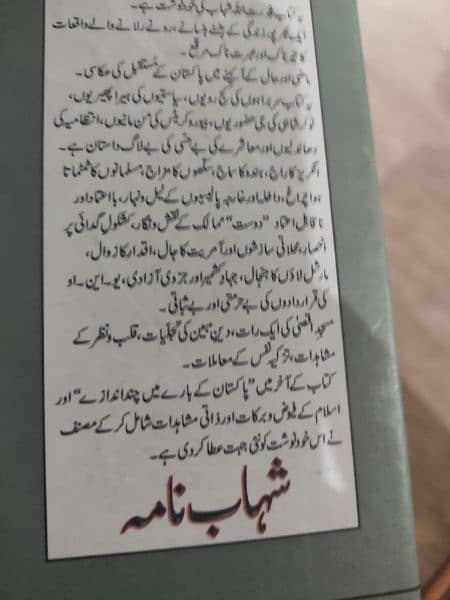 یہ کتاب قدرت اللہ شہاب کی خودنوشت ہے۔
ایک بھرپور زندگی کے ہنسنے ہنسانے، رونے رلانے والے واقعات
کا حیرتناک اور عبرت ناک مرقع۔
ماضی اور حال کے آئینے میں پاکستان کے مستقبل کی عکاسی۔
یہ کتاب سربراہوں کی کج رویوں، سیاستیوں کی ہیرا پھیریوں،
نوکر شاہی کی جی حضوریوں، بیوروکریٹس کی من مانیوں، انتظامیہ کی
دھاندلیوں اور معاشرے کی بے حسی کی بے لاگ داستان ہے۔
انگریز کا راج، ہندو کا سماج، سکھوں کا مزاج، مسلمانوں کا ٹمٹماتا
ہوا چراغ، داخلہ اور خارجہ پالیسیوں کے لیل و نہار، بااعتماد اور
ناقابل اعتماد "دوست" ممالک کے نقش و نگار، کشکول گدائی پر
انحصار، محلاتی سازشوں اور آمریت کا جال، اقدار کا زوال،
مارشل لاؤں کا جنجال، جہاد کشمیر اور جزوی آزادی، یو۔این۔او
کی قراردادوں کی بے حرمتی اور بے ثباتی۔
مسجد اقصیٰ کی ایک رات، دین مبین کی تجلیات، قلب و نظر کے
مشاہدات، تزکیہ نفس کے معاملات۔
کتاب کے آخر میں "پاکستان کے بارے میں چند اندازے" اور
اسلام کے فیوض و برکات اور ذاتی مشاہدات شامل کر کے مصنف
نے اس خودنوشت کو نئی جہت عطا کر دی ہے۔
شہاب نامہ